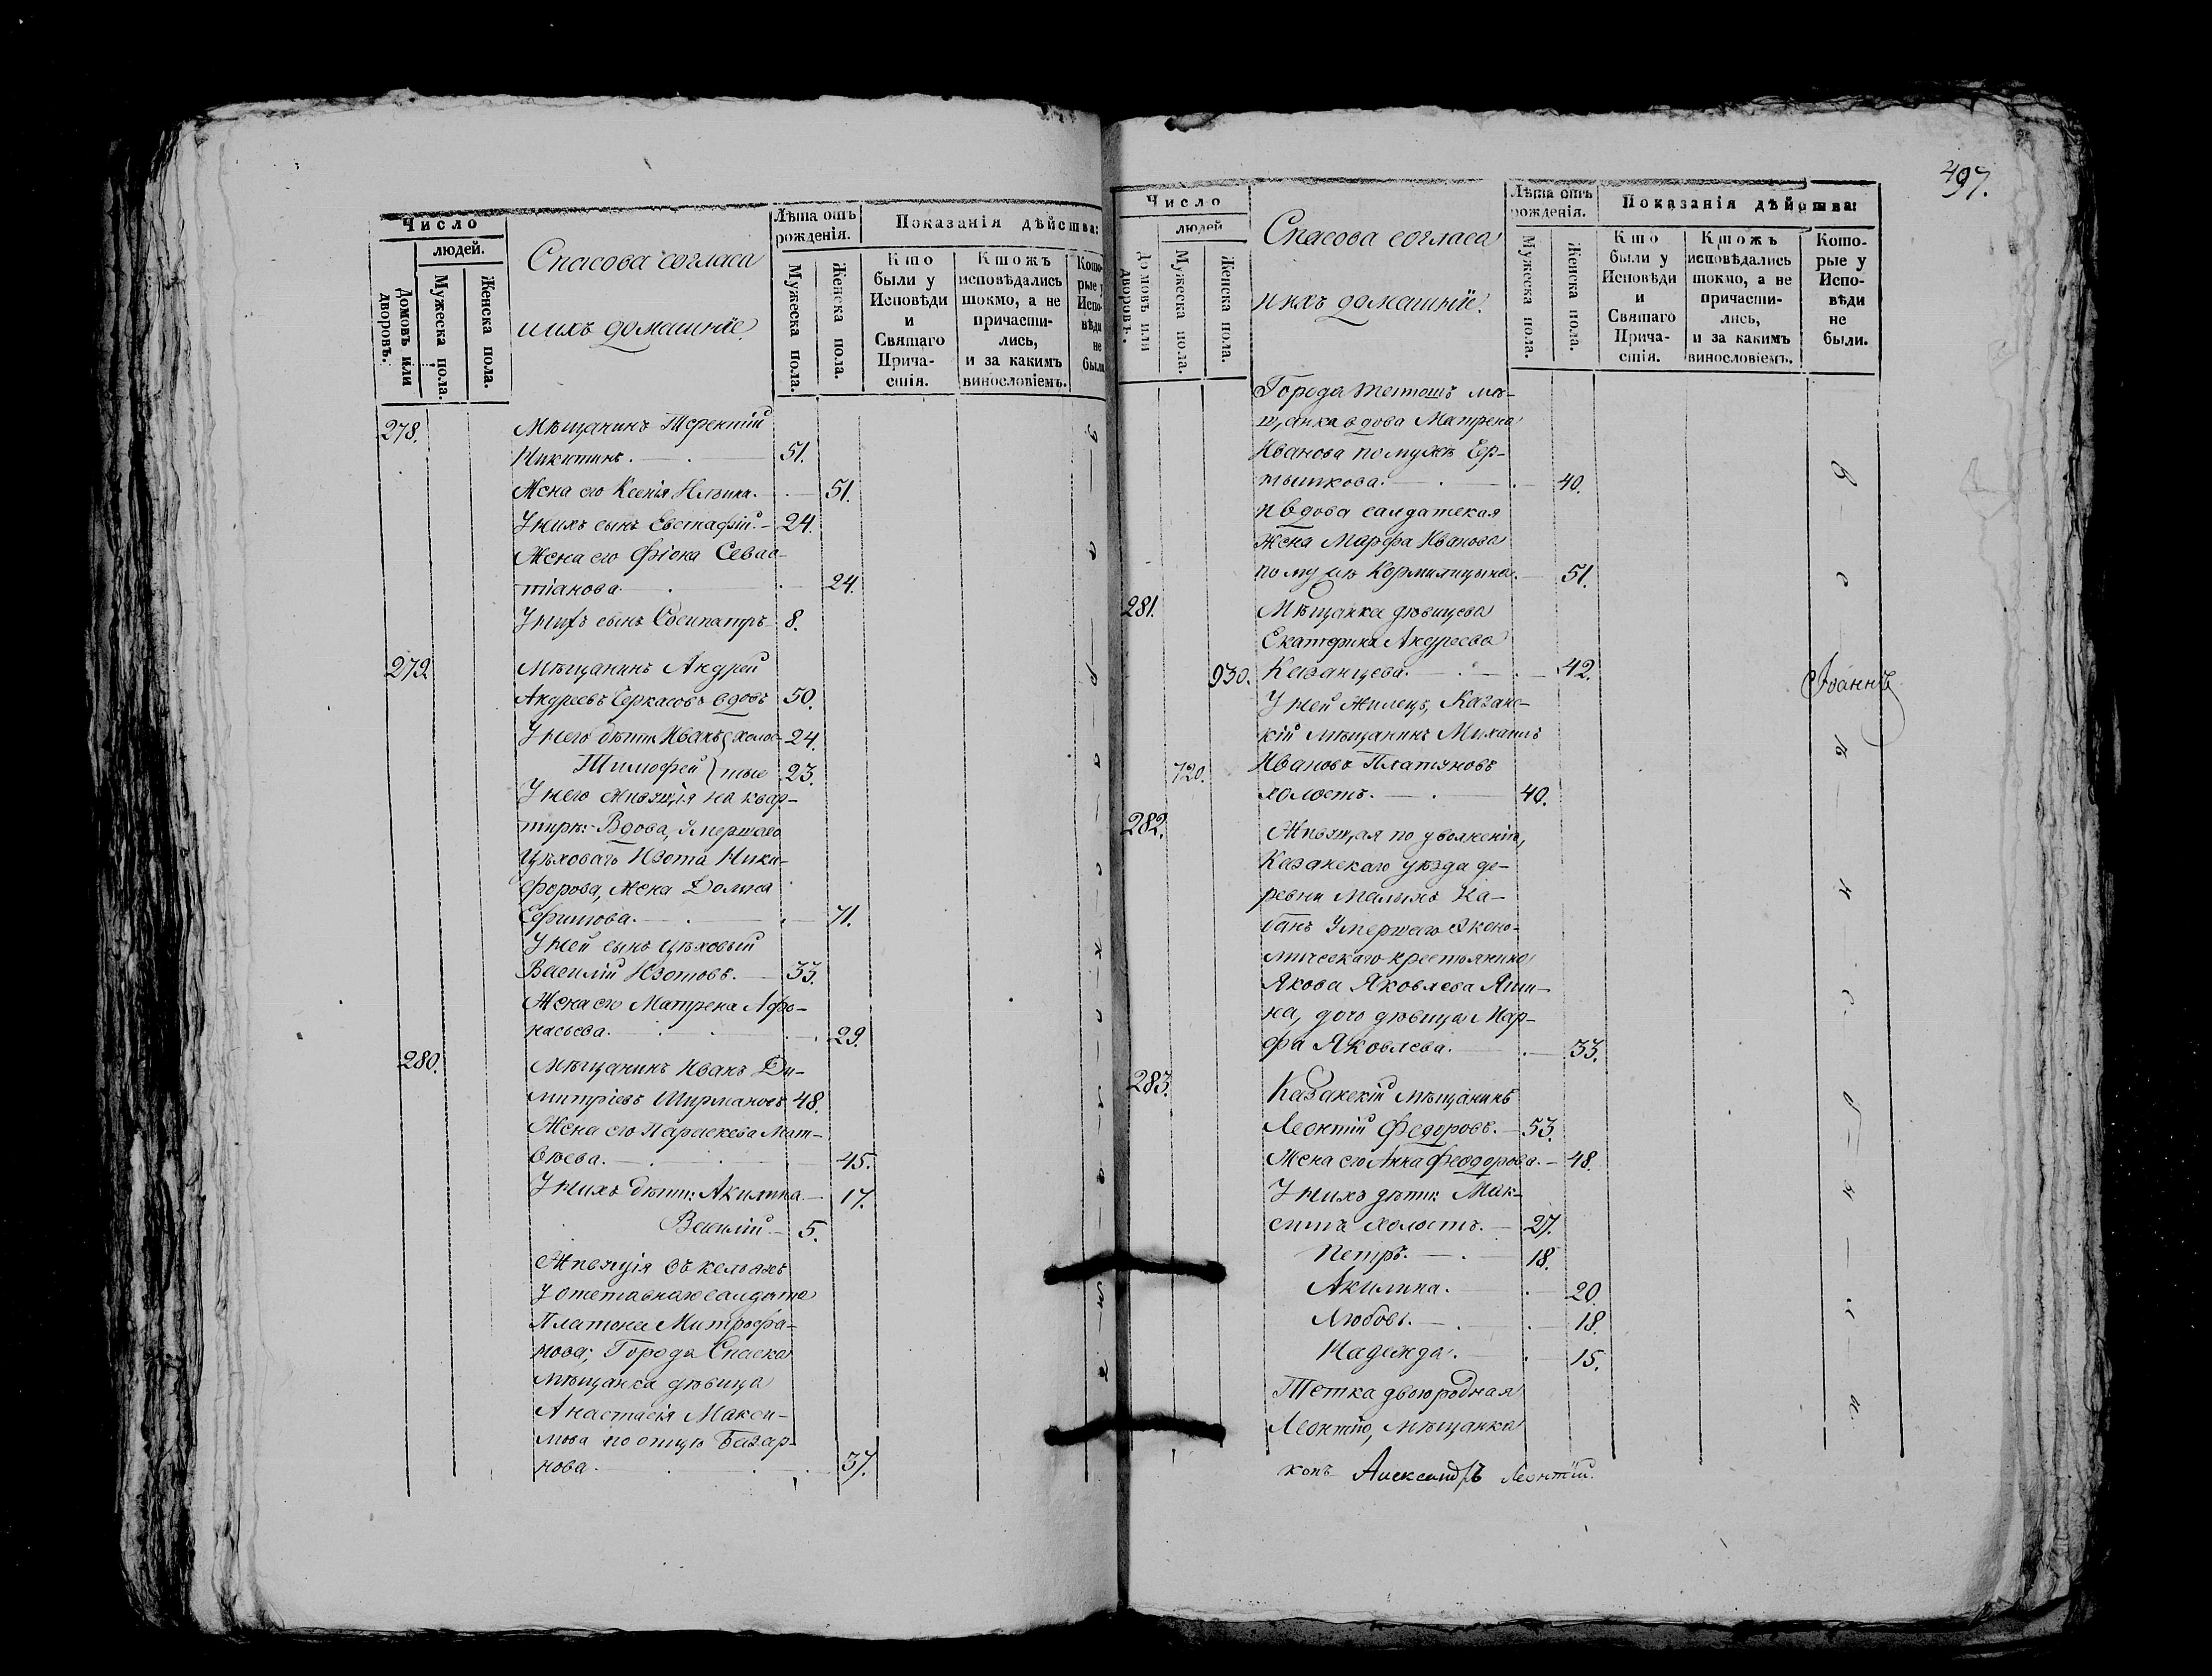 Число
людей.
Домовъ или дворовъ.
Мужеска пола.
Женска пола.
Спасова согласа
и ихъ домашніе.
Лѣта отъ рожденія.
Мужеска пола.
Женска пола.
Показанія дѣйства:
Кто были у Исповѣди и Святаго Прича-стія.
Ктожъ исповѣдались токмо, а не причасти-лись, и за какимъ винословіемъ.
Кото-рые у Испо-вѣди не были
278. Мѣщанинъ Терентій
Никитинъ. 51.
Жена его Ксенія Ильина. 51.
У нихъ сынъ Евстафій. 24.
Жена его Фіона Севас-
тіанова. 24.
У нихъ сынъ Сосипатръ 8.
279. Мѣщанинъ Андрей
Андреевъ Черкасовъ вдовъ 50.
У него дѣти Иванъ холос- 24.
Тимофей тые 23.
У него живущія на квар-
тирѣ: Вдова, умершаго
Цѣховаго Изота Ники-
форова, жена Домна
Ефимова. 71.
У ней сынъ цѣховый
Василій Изотовъ. 33.
Жена его Матрена Афа-
насьева. 29.
280. Мѣщанинъ Иванъ Ди-
митріевъ Ширмановъ 48.
Жена его Параскева Мат-
вѣева. 45.
У нихъ дѣти: Акилина 17.
Василій 5.
Живущія въ кельяхъ
У отставнаго салдата
Платона Митрофа-
нова; Города Спаска
мѣщанка дѣвица
Анастасія Макси-
мова по отцѣ Базар-
нова 37.
497.
Число
людей
Домовъ или дворовъ.
Мужеска пола.
Женска пола.
Спасова согласа
и ихъ домашніе.
Лѣта отъ рожденія.
Мужеска пола.
Женска пола.
Показанія дѣйства:
Кто были у Исповѣди и Святаго Прича-стія.
Ктожъ исповѣдались токмо, а не причасти-лись, и за какимъ винословіемъ.
Кото-рые у Испо-вѣди не были.
Города Тетюшъ мѣ-
щанка вдова Матрена
Иванова по мужѣ Ер-
тышкова. 40.
И вдова салдатская
жена Марфа Иванова
по мужѣ Кормилицына. 51.
281. Мѣщанка дѣвица
Екатерина Андреева
930. Казанцева. 42.
Іоаннъ
У ней жилецъ, Казанс-
кій мѣщанинъ Михаилъ
720. Ивановъ Платуновъ
холостъ. 40.
282. Живущая по уволненію,
Казанскаго уѣзда де-
ревни Малыхъ Ка-
банъ Умершаго Эконо-
мическаго крестьянина
Якова Яковлева
на, дочь дѣвица Мар-
фа Яковлева. 33.
283. Казанскій мѣщанинъ
Леонтій Федоровъ. 53.
Жена его Анна Феодорова. 48.
У нихъ дѣти: Мак-
симъ холостъ. 27.
Петръ. 18.
Акилина. 20.
Любовь. 18.
Надежда. 15.
Тетка двоюродная
Леонтію, мѣщанка
Александръ Леонтій.